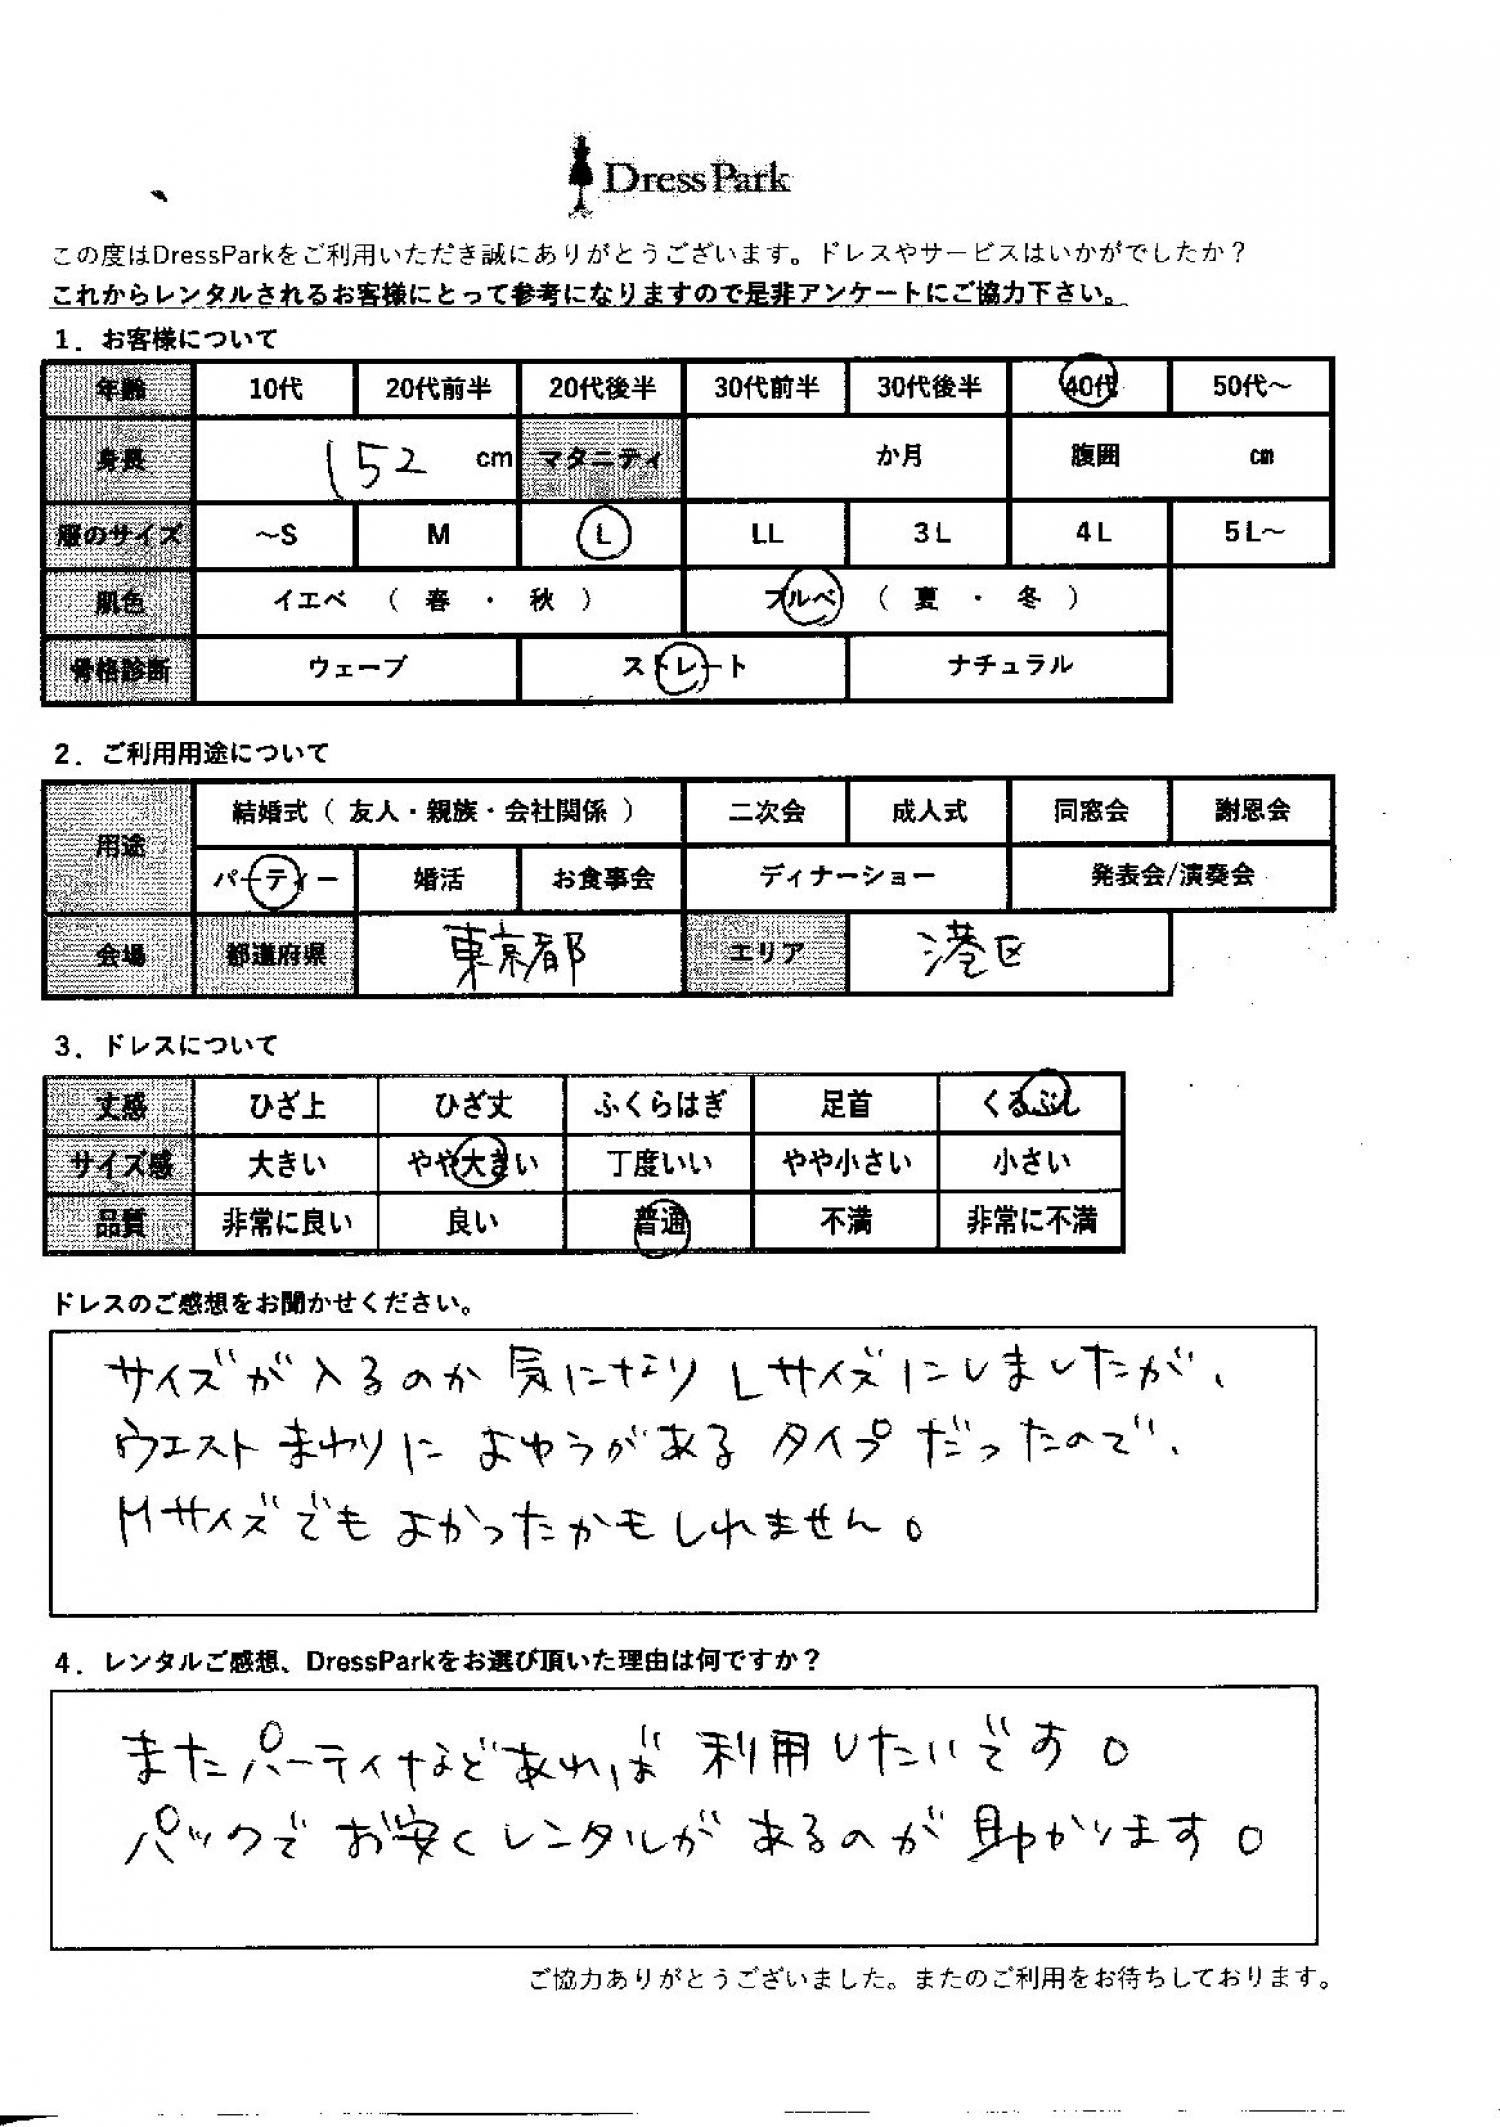 Dress Park
この度はDressParkをご利用いただき誠にありがとうございます。ドレスやサービスはいかがでしたか？
これからレンタルされるお客様にとって参考になりますので是非アンケートにご協力下さい。
1．お客様について
年齢 10代 20代前半 20代後半 30代前半 30代後半 40代 50代～
身長 152 cm マタニティ か月 腹囲 cm
服のサイズ ～S M L LL 3L 4L 5L～
肌色 イエベ （ 春 ・ 秋 ） ブルベ （ 夏 ・ 冬 ）
骨格診断 ウェーブ ストレート ナチュラル
2．ご利用用途について
用途 結婚式（ 友人・親族・会社関係 ） 二次会 成人式 同窓会 謝恩会
パーティー 婚活 お食事会 ディナーショー 発表会/演奏会
会場 都道府県 東京都 エリア 港区
3．ドレスについて
丈感 ひざ上 ひざ丈 ふくらはぎ 足首 くるぶし
サイズ感 大きい やや大きい 丁度いい やや小さい 小さい
品質 非常に良い 良い 普通 不満 非常に不満
ドレスのご感想をお聞かせください。
サイズが入るのか気になりLサイズにしましたが、
ウエストまわりによゆうがあるタイプだったので、
Mサイズでもよかったかもしれません。
4．レンタルご感想、DressParkをお選び頂いた理由は何ですか？
またパーティなどあれば利用したいです。
パックでお安くレンタルがあるのが助かります。
ご協力ありがとうございました。またのご利用をお待ちしております。